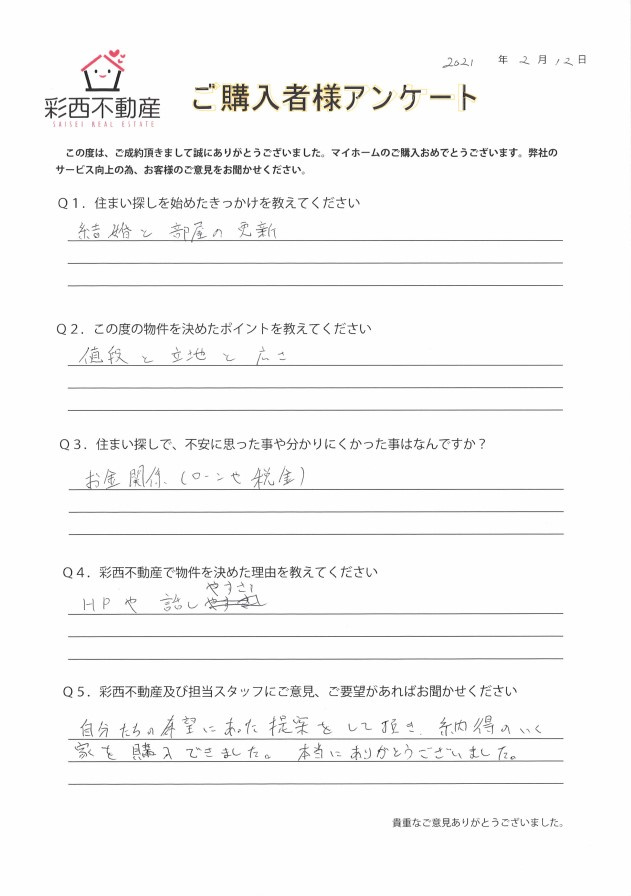 2021 年 2 月 12 日
彩西不動産
SAISEI REAL ESTATE
ご購入者様アンケート
この度は、ご成約頂きまして誠にありがとうございました。マイホームのご購入おめでとうございます。弊社の
サービス向上の為、お客様のご意見をお聞かせください。
Q1．住まい探しを始めたきっかけを教えてください
結婚と部屋の更新
Q2．この度の物件を決めたポイントを教えてください
値段と立地と広さ
Q3．住まい探しで、不安に思った事や分かりにくかった事はなんですか？
お金関係（ローンや税金）
Q4．彩西不動産で物件を決めた理由を教えてください
HPや話しやすさ
Q5．彩西不動産及び担当スタッフにご意見、ご要望があればお聞かせください
自分たちの希望にあった提案をして頂き、納得のいく
家を購入できました。本当にありがとうございました。
貴重なご意見ありがとうございました。